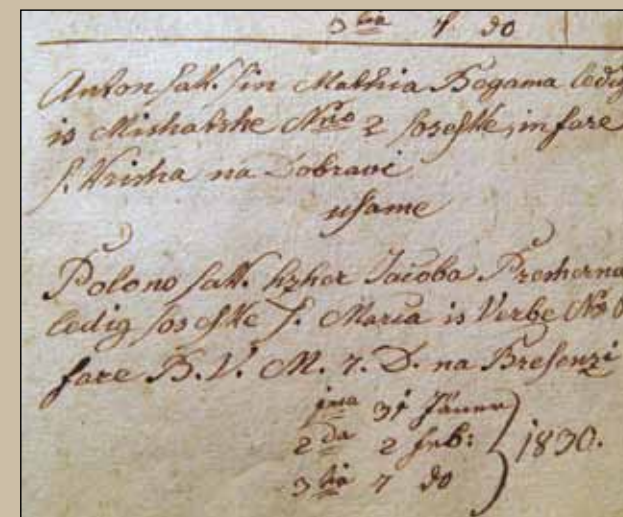 3tia 7 do
Anton sak. sin Mathia Bogama ledig
is Mishatshe Nro 2 soseske, in fare
s. Krisha na Dobravi
usame
Polono sak. hzher Jacoba Premerna
ledig soseske S. Maria is Verbe Nro
fare B. V. M. 7. D. na Bresenzi
1ma 31 Jäner
2da 2 feb: 1830.
3tia 7 do